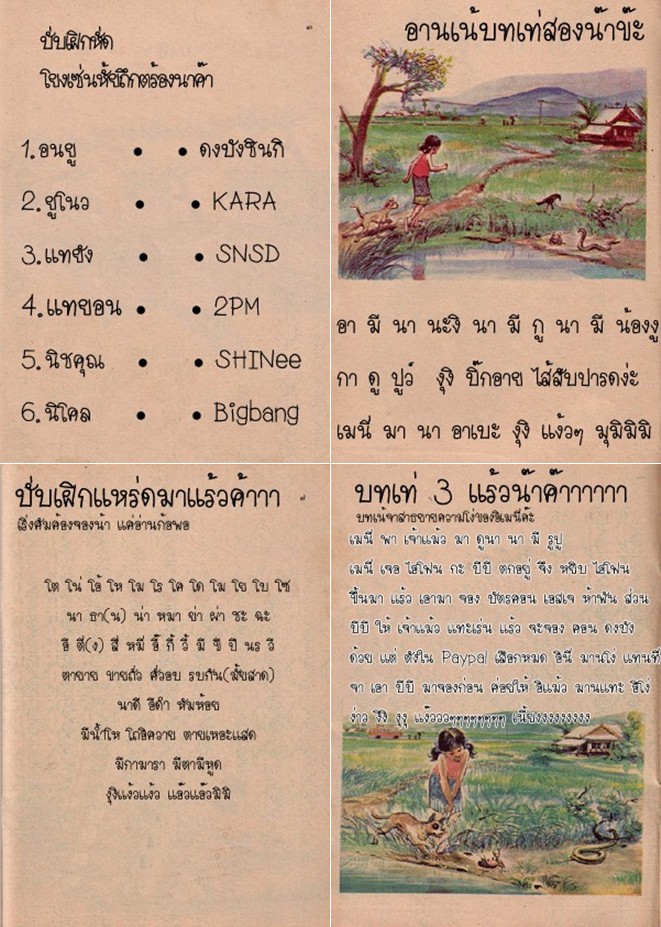 ปั่บเฝิกหั่ด
โยงเซ่นหั้ยถึกตร้องนาค๊า
1. อนยู • • ดงบังชินกิ
2. ยูโนว • • KARA
3. แทยัง • • SNSD
4. แทยอน • • 2PM
5. นิชคุณ • • SHINee
6. นิโคล • • Bigbang
อานเน้บทเท่สองน๊าข๊ะ
อา มี นา นะงิ นา มี กู นา มี น้องงู
กา ดู ปูว์ งุงิ บิ๊กอาย ไส้สับปารดง่ะ
เมนี่ มา นา อาเบะ งุงิ แง้วๆ มุมิมิมิ
ปั่บเฝิกแหร่ดมาแร้วค้าาา
เร่งสัมค้องจองน้า แค่อ่านก้อพอ
โต โน่ โอ้ โห โม โร โค โด โม โย โบ โซ
นา ธา(น) น่า หมา ย่า ผ่า ชะ ฉะ
อี ตี่(ง) สี่ หมี อี๊ กี้ วี้ มี ซี ปี นร วี
ตายาย ขายถั่ว คั่วอบ รบกัน(มั้ยสาด)
นาดี อีดำ หัมห้อย
มีน้ำโห โถอีควาย ตายเหอะแสด
มีกามารา มีตามีหูด
งุงิแง้วแง้ว แอ๊วแอ๊วมิมิ
บทเท่ 3 แร้วน๊าค๊าาาาาา
บทเน้จาสาธยายความโง่ของอิเมนี่ค๊ะ
เมนี่ พา เจ้าแม้ว มา ดูนา นา มี รูปู
เมนี่ เจอ ไอโฟน กะ บีบี ตกอยู่ จึง หยิบ ไอโฟน
ขึ้นมา แร้ว เอามา จอง บัตรคอน เอสเจ ห้าพัน ส่วน
บีบี ให้ เจ้าแม้ว แทะเร่น แร้ว จะจอง คอน ดงบัง
ด้วย แต่ ตังใน Paypal เสือกหมด อินี่ มานโง่ แทนที่
จา เอา บีบี มาจองก่อน ค่อยให้ อิแม้ว มานแทะ อิโง่
ง่าว งึงิ งุงุ แง้วววๆๆๆๆๆๆๆๆ เนี้ยงงงงงงงงงง